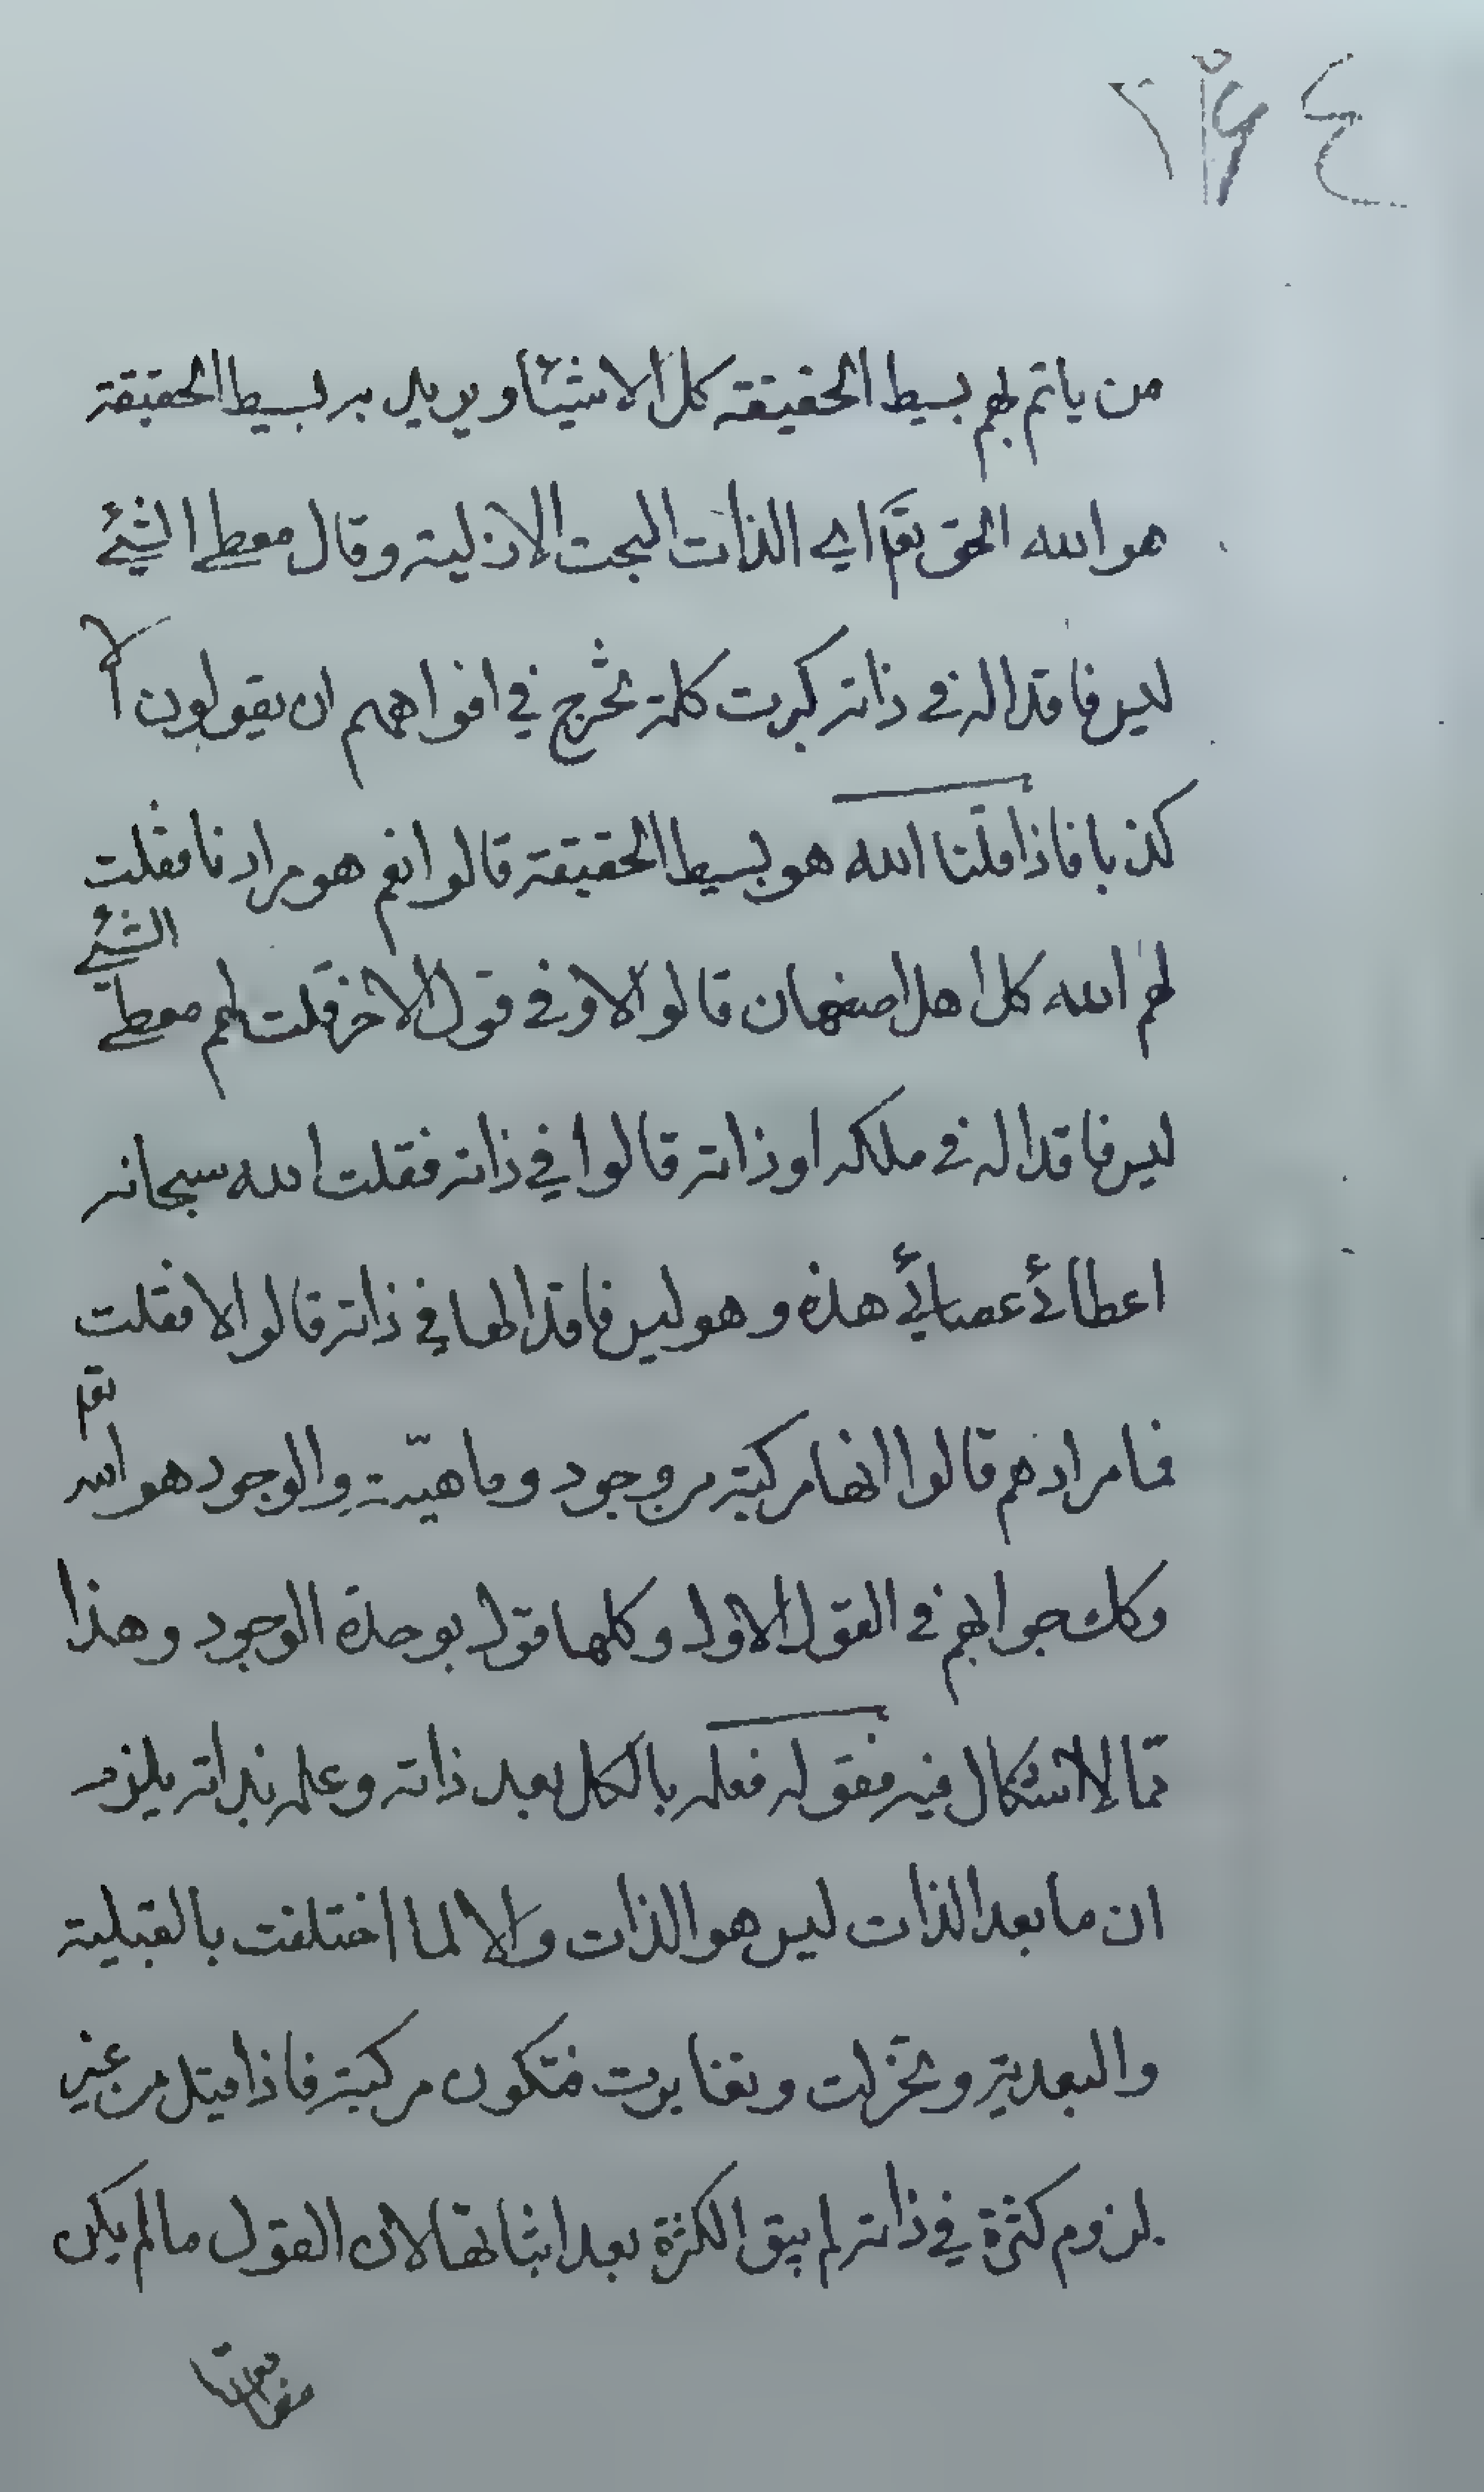 من ياتم لهم بسيط الحقيقة كل الاشيٓا ويريد به بسيط الحقيقة
هو الله الحق تعٓ اي الذات البحت الازلية وقال معطي الشئ
ليس فاقدا له في ذاته كبرت كلمة تخرج في افواههم ان يقولون الا
كذبا فاذا قلنا الله هو بسيط الحقيقة قالوا نعم هو مرادنا فقلت
لهم الله كل اهل اصفهان قالوا لا وفي قول الاخر قلت لهم معطي الشئ
ليس فاقدا له في ملكه او ذاته قالوا في ذاته فقلت الله سبحانه
اعطائے عصائے هذه وهو ليس فاقدا لها في ذاته قالوا لا فقلت
فما مرادهم قالوا انها مركبة من وجود وماهيّة والوجود هو الله تعٓ
وكك جوابهم في القول الاول وكلها قول بوحدة الوجود وهذا
ممّا لا اشكال فيه فقوله فعلمه بالكل بعد ذاته وعلمه بذاته يلزم
ان ما بعد الذات ليس هو الذات والا لما اختلفت بالقبلية
والبعدية وتحزلت وتغايرت فتكون مركبة فاذا قيل من غير
لزوم كثرة في ذاته لم يبق الكثرة بعد اثباتها لان القول ما لم يكن